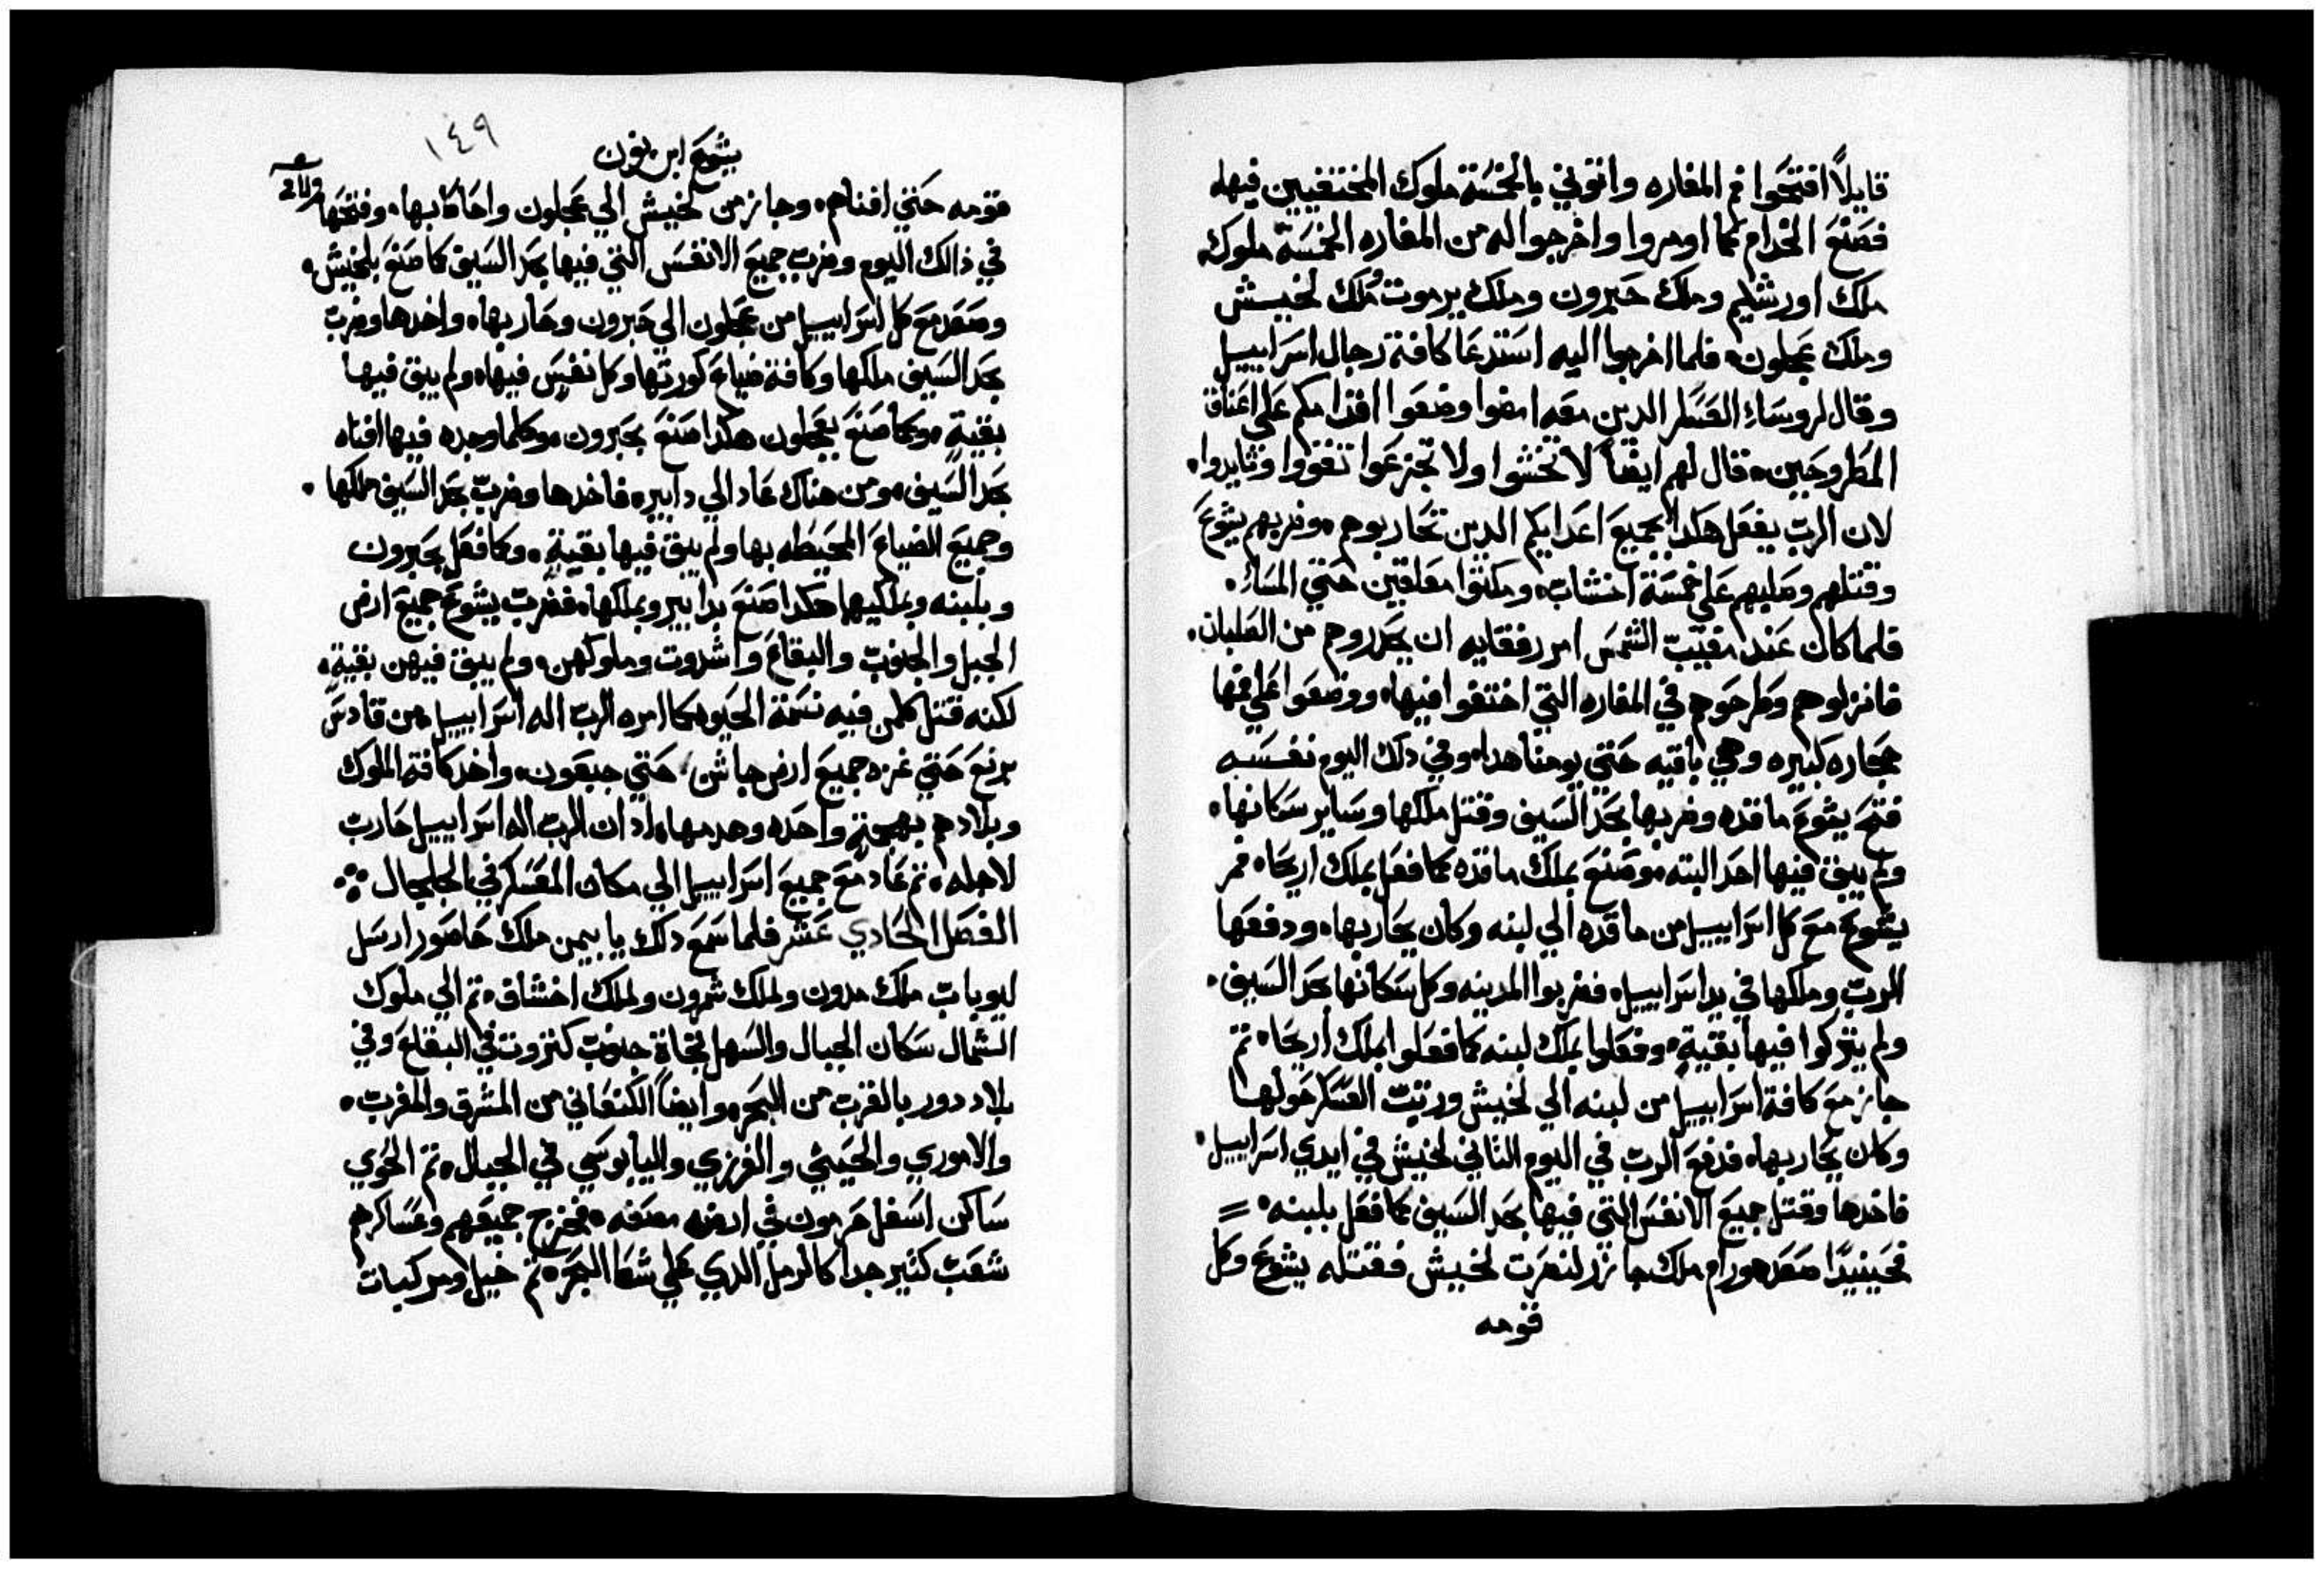 قايلاً افتحوا فم المغاره واتوني بالخمسة ملوك المختفيين فيها
فصنع الخدام كما اومروا واخرجوا له من المغاره الخمسة ملوك
ملك اورشليم وملك حبرون وملك يرموت ملك لخيش
وملك عجلون فلما اخرجوا اليه استدعا كافة رجال اسراييل
وقال لروساء العسكر الدين معه امضوا وضعوا اقدامكم علي اعناق
المطروحين فقال لهم ايضاً لا تخشوا ولا تجزعوا تقووا وتايدوا
لان الرب يفعل هكدا بجميع اعدايكم الدين تحاربوهم وضربهم يشوع
وقتلهم وصلبهم علي خمسة اخشاب ومكتوا معلقين حتي المساء
فلما كان عند مغيب الشمس امر رفقايه ان يحدروهم من الصلبان
فانزلوهم وطرحوهم في المغاره التي اختفوا فيها ووضعوا علي فمها
حجاره كبيره وهي باقيه حتي يومنا هدا وفي دلك اليوم نفسه
فتح يشوع ماقده وضربها بحد السيف وقتل ملكها وساير سكانها
ولم يبق فيها احد البته وصنع بملك ماقده كما فعل بملك اريحا فمر
يشوع مع كل اسراييل من ماقده الي لبنه وكان يحاربها ودفعها
الرب وملكها في يد اسراييل فضربوا المدينه وكل سكانها بحد السيف
ولم يتركوا فيها بقية وفعلوا بملك لبنه كما فعلوا بملك اريحا تم
جاز مع كافة اسراييل من لبنه الي لخيش ورتب العسكر حولها
وكان يحاربها فدفع الرب في اليوم التاني لخيش في ايدي اسراييل
فاخدها وقتل جميع الانفس التي فيها بحد السيف كما فعل بلبنه =
فحينيدًا صعد هورام ملك جازر لنصرت لخيش فقتله يشوع وكل
قومه
يشوع ابن نون
١٤٩
قومه حتي افناهم وجاز من لخيش الي عجلون واحاط بها وفتحها
في ذالك اليوم وضرب جميع الانفس التي فيها بحد السيف كما صنع بلخيش
وصعد مع كل اسراييل من عجلون الي حبرون وحاربها واخدها وضرب
بحد السيف ملكها وكافة ضياع كورتها وكل نفس فيها ولم يبق فيها
بقية وكما صنع بعجلون هكدا صنع بحبرون وكلما وجده فيها افناه
بحد السيف ومن هناك عاد الي دابير فاخدها وضرب بحد السيف ملكها
وجميع الضياع المحيطه بها ولم يبق فيها بقية وكما فعل بحبرون
وبلبنه وبملكيها هكدا صنع بدابير وبملكها فضرب يشوع جميع ارض
الجبل والجنوب والبقاع واشدوت وملوكهن ولم يبق فيهن بقية
لكنه قتل كلمن فيه نسمة الحيوه كما امره الرب اله اسراييل من قادس
برنع حتي غزه جميع ارض جاشن حتي جبعون واخد كافة الملوك
وبلادهم بهجمة واحده وهدمها اد ان الرب اله اسراييل حارب
لاجله تم عاد مع جميع اسراييل الي مكان المعسكر في الجلجال
الفصل الحادي عشر فلما سمع دلك يابين ملك حاصور ارسل
ليوباب ملك مدون ولملك شمرون ولملك اخشاف تم الي ملوك
الشمال سكان الجبال والسهل تجاة جنوب كنزوت في البقاع وفي
بلاد دور بالقرب من البحر وايضاً الكنعاني من المشرق والمغرب
والاموري والحيتي والفرزي واليابوسي في الجبال تم الحوي
ساكن اسفل حرمون في ارض مصفه فخرج جميعهم وعساكرهم
شعب كتير جدا كالرمل الدي علي شط البحر تم خيل ومركبات